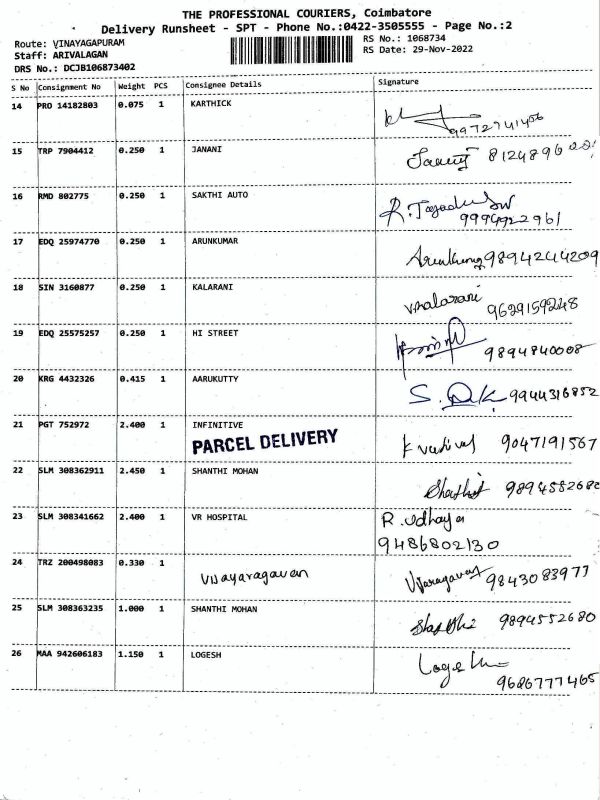 THE PROFESSIONAL COURIERS, Coimbatore
Delivery Runsheet - SPT - Phone No.:0422-3505555 - Page No.:2
Route: VINAYAGAPURAM
RS No.: 1068734
Staff: ARIVALAGAN
RS Date: 29-Nov-2022
DRS No.: DCJB106873402
S No Consignment No Weight PCS Consignee Details Signature
14 PRO 14182803 0.075 1 KARTHICK
9972741456
15 TRP 7904412 0.250 1 JANANI
8124896
16 RMD 802775 0.250 1 SAKTHI AUTO
9994922961
17 EDQ 25974770 0.250 1 ARUNKUMAR
Arunkumar 9894244209
18 SIN 3160877 0.250 1 KALARANI
V.kalarani
9629159248
19 EDQ 25575257 0.250 1 HI STREET
9894840008
20 KRG 4432326 0.415 1 AARUKUTTY
9944316852
21 PGT 752972 2.400 1 INFINITIVE
PARCEL DELIVERY
9047191567
22 SLM 308362911 2.450 1 SHANTHI MOHAN
Shanthi 989455268
23 SLM 308341662 2.400 1 VR HOSPITAL
R.udhaya
9486802130
24 TRZ 200498083 0.330 1
Vijayaragavan
9843083977
25 SLM 308363235 1.000 1 SHANTHI MOHAN
9894552680
26 MAA 942606183 1.150 1 LOGESH
9686777465